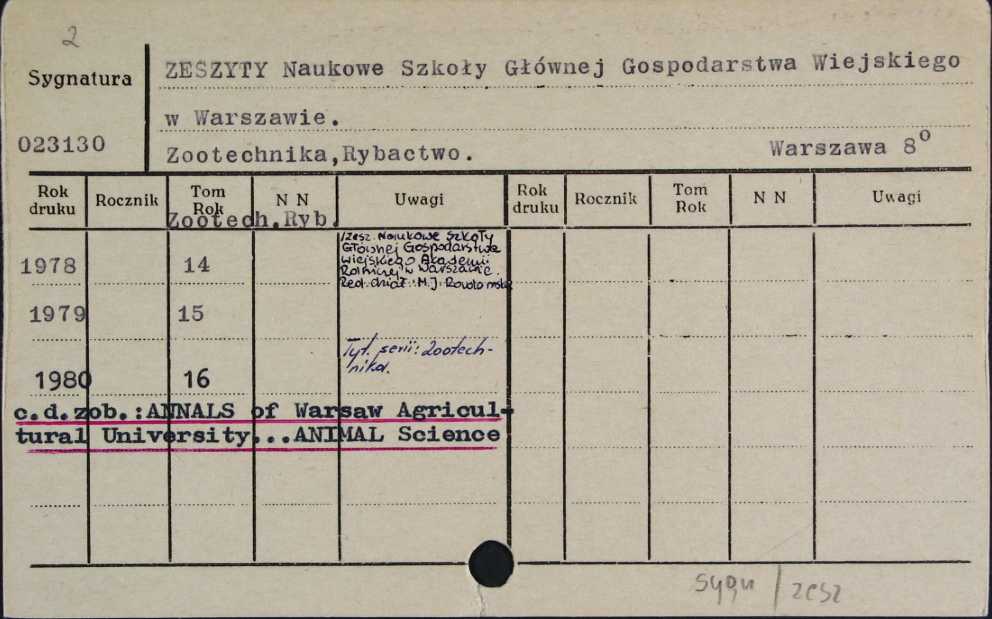 2
Sygnatura
ZESZYTY Naukowe Szkoły Głównej Gospodarstwa Wiejskiego
w Warszawie.
023130
Zootechnika,Rybactwo. Warszawa 8°
Rok druku Rocznik Tom Rok N N Uwagi Rok druku Rocznik Tom Rok N N Uwagi
Zootech.Ryb.
/Zesz. Naukowe Szkoły
Głównej Gospodarstwa
Wiejskiego Akademii
Rolniczej w Warszawie.
Red. M.J.
1978 14
1979 15
Tyt. serii: Zootech-
nika.
1980 16
c.d.zob.:ANNALS of Warsaw Agricul-
tural University...ANIMAL Science
sygn / zesz